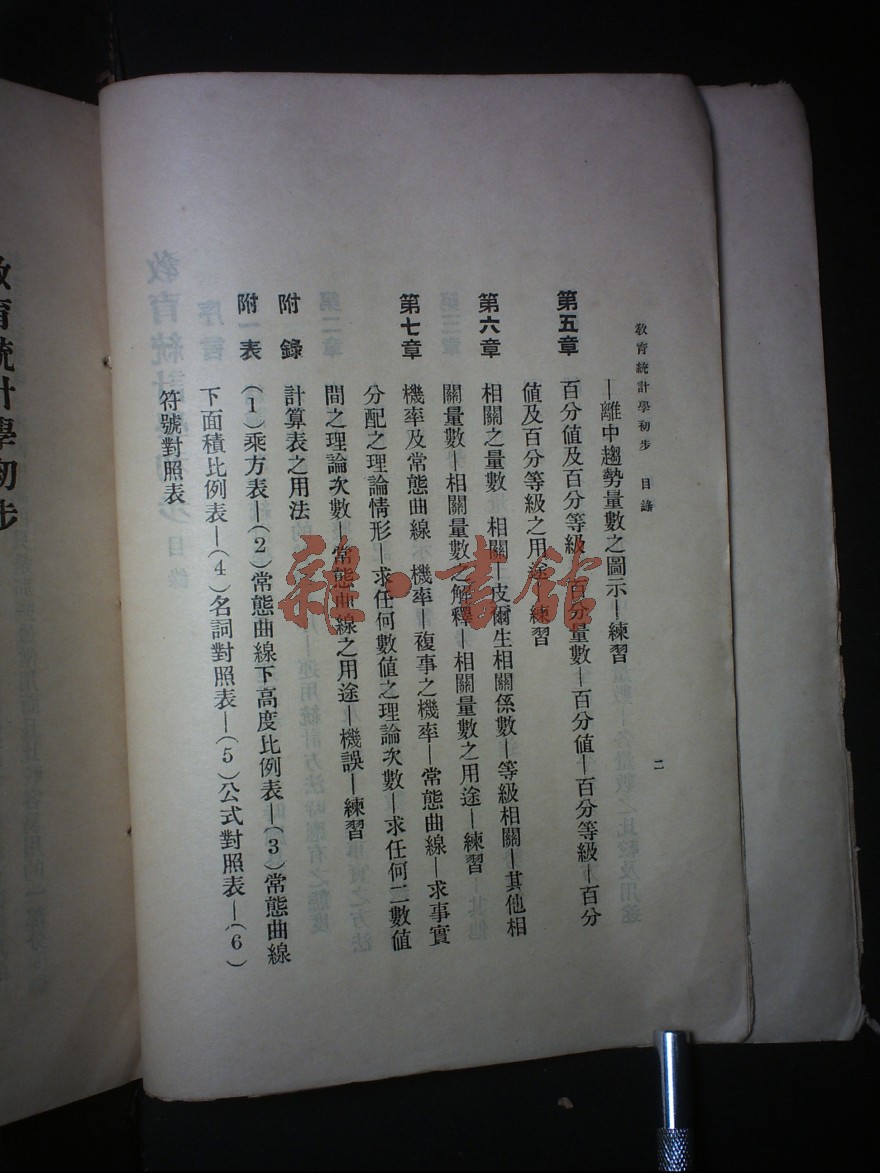 教育統計學初步　目錄
二
—離中趨勢量數之圖示—練習
第五章　百分值及百分等級　百分量數—百分值—百分等級—百分
值及百分等級之用途—練習
第六章　相關之量數　相關—皮爾生相關係數—等級相關—其他相
關量數—相關量數之解釋—相關量數之用途—練習
第七章　機率及常態曲線　機率—複事之機率—常態曲線—求事實
分配之理論情形—求任何數值之理論次數—求任何二數值
間之理論次數—常態曲線之用途—機誤—練習
附錄　計算表之用法
附表　(1)乘方表—(2)常態曲線下高度比例表—(3)常態曲線
下面積比例表—(4)名詞對照表—(5)公式對照表—(6)
符號對照表
教育統計學初步
雜·書館